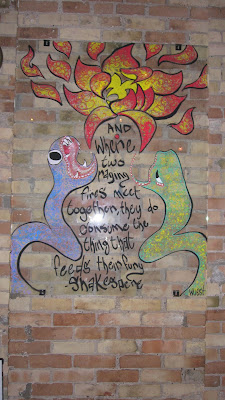 AND
where
two
Raging
fires meet
together, they do
consume the
thing that
feeds their fury
Shakespere